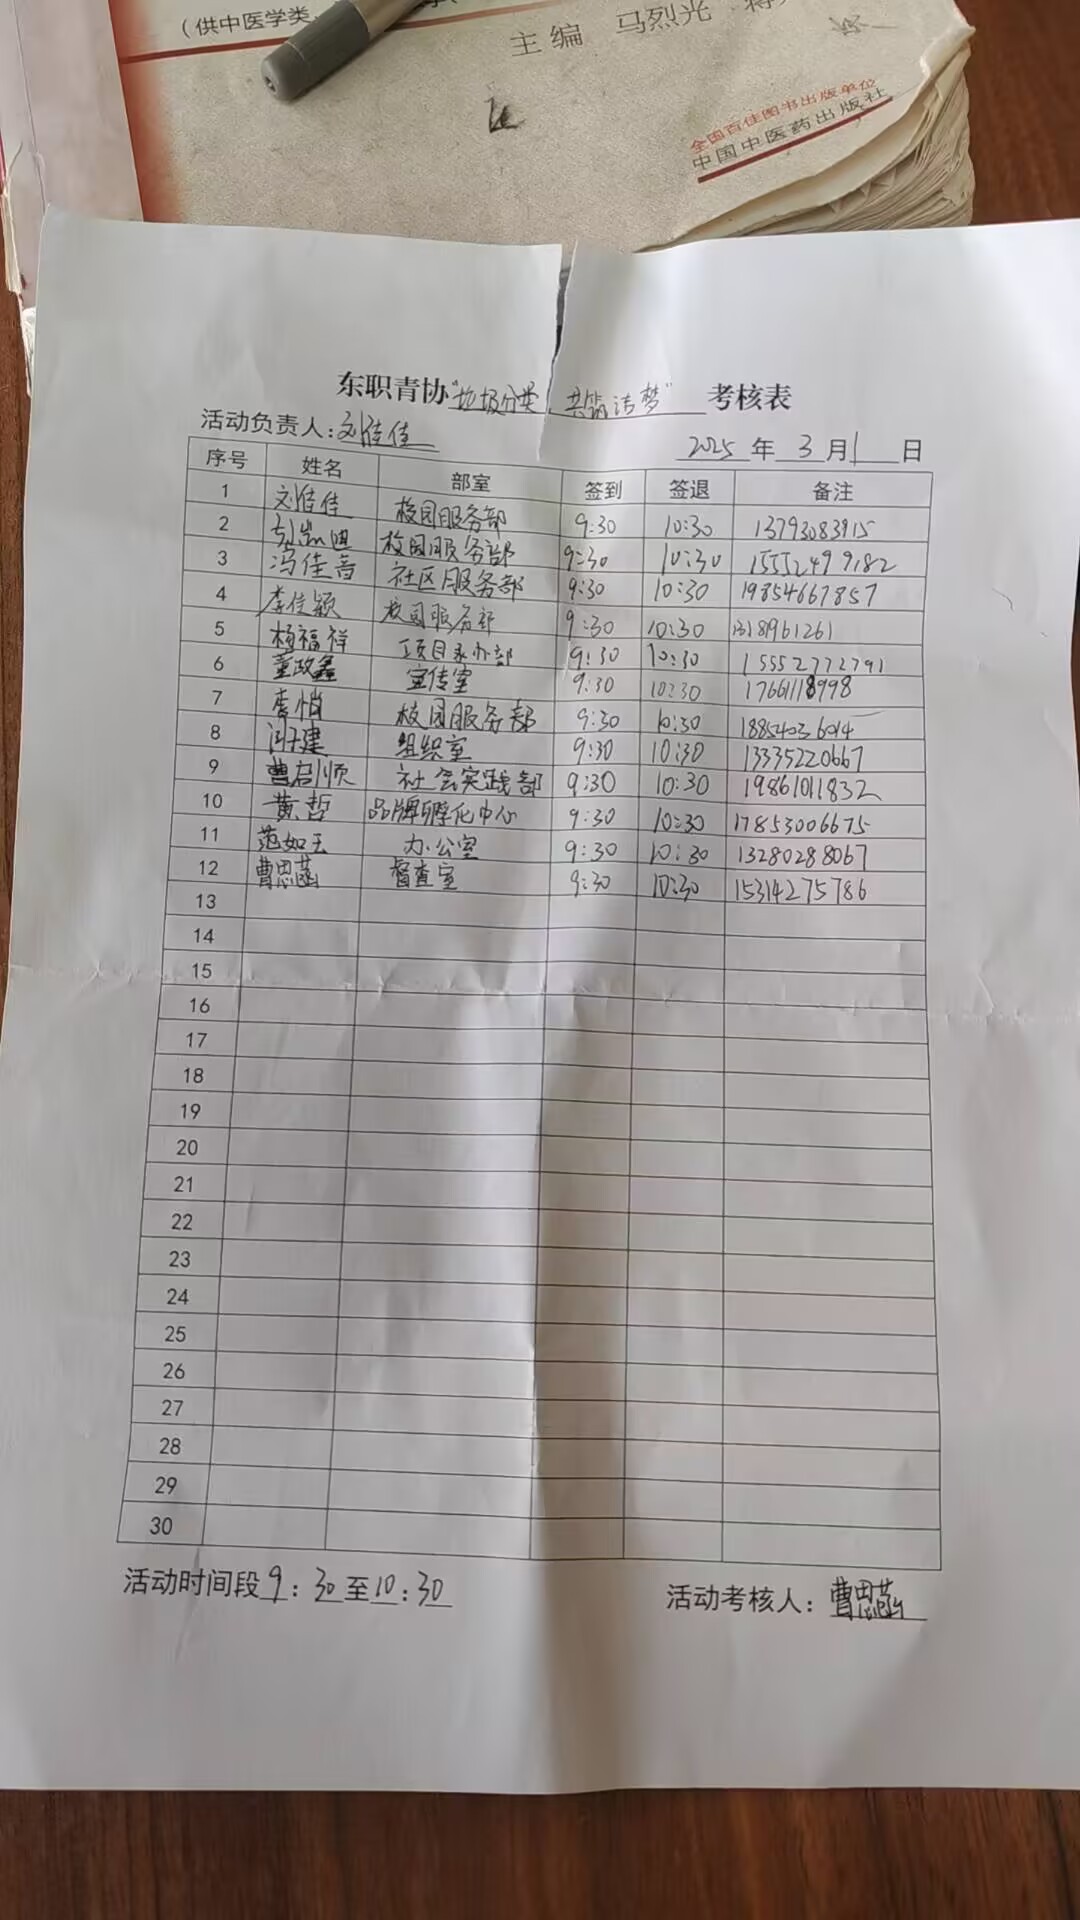 （供中医学类
主编 马烈光
全国百佳图书出版单位
中国中医药出版社
东职青协“垃圾分类，共筑洁梦” 考核表
活动负责人:刘佳佳 2025 年 3 月 1 日
序号 姓名 部室 签到 签退 备注
1 刘佳佳 校园服务部 9:30 10:30 13793083915
2 校园服务部 9:30 10:30 15552499182
3 冯佳音 社区服务部 9:30 10:30 19854667857
4 李佳颖 校园服务部 9:30 10:30
5 杨福祥 项目承办部 9:30 10:30 15552772791
6 董政鑫 宣传室 9:30 10:30 17661118998
7 李悄 校园服务部 9:30 10:30 18854036014
8 组织室 9:30 10:30 13335220667
9 曹启顺 社会实践部 9:30 10:30 19861011832
10 黄哲 品牌孵化中心 9:30 10:30 17853006675
11 范如玉 办公室 9:30 10:30 13280288067
12 曹思菡 督查室 9:30 10:30 15314275786
13
14
15
16
17
18
19
20
21
22
23
24
25
26
27
28
29
30
活动时间段9:30至10:30 活动考核人:曹思菡